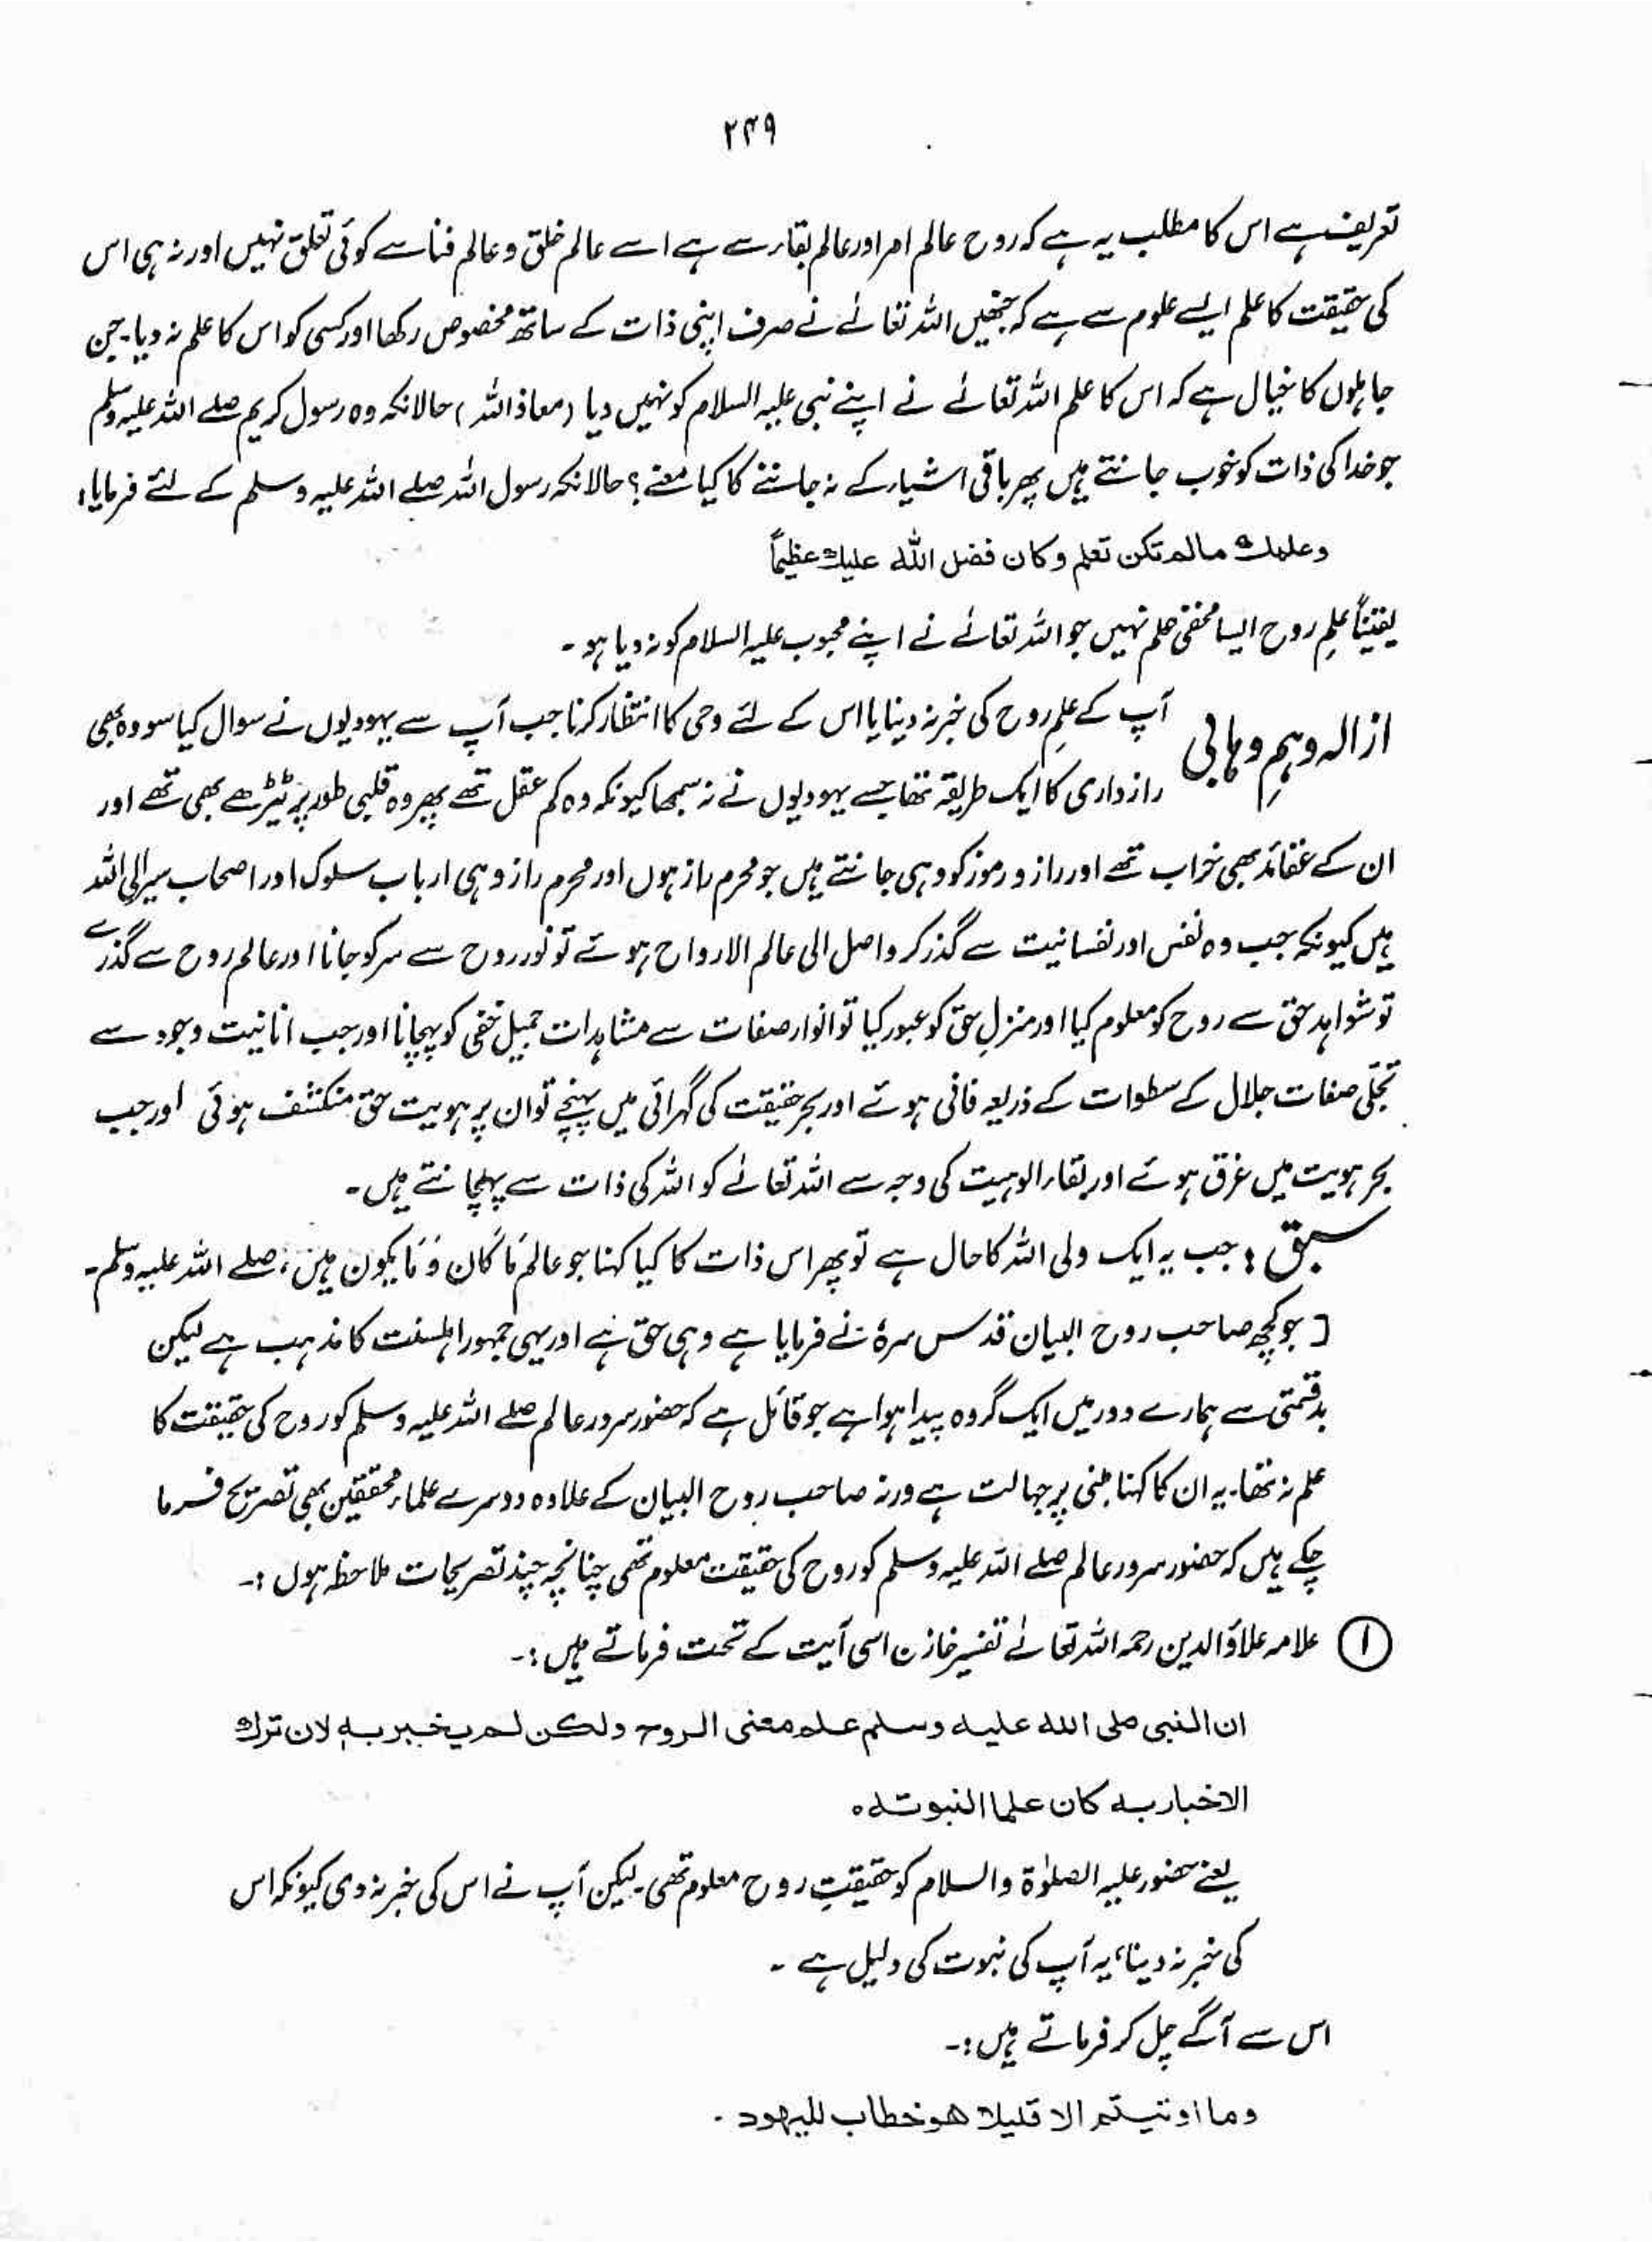 ۲۴۹
تعریف ہے اس کا مطلب یہ ہے کہ روح عالم امر اور عالم بقاء سے ہے اسے عالم خلق و عالم فنا سے کوئی تعلق نہیں اور نہ ہی اس
کی حقیقت کا علم ایسے علوم سے ہے کہ جنھیں اللہ تعالےٰ نے صرف اپنی ذات کے ساتھ مخصوص رکھا اور کسی کو اس کا علم نہ دیا۔ جن
جاہلوں کا خیال ہے کہ اس کا علم اللہ تعالےٰ نے اپنے نبی علیہ السلام کو نہیں دیا (معاذ اللہ) حالانکہ وہ رسول کریم صلے اللہ علیہ وسلم
جو خدا کی ذات کو خوب جانتے ہیں پھر باقی اشیاء کے نہ جاننے کا کیا معنے؟ حالانکہ رسول اللہ صلے اللہ علیہ وسلم کے لئے فرمایا:
وعلمك مالم تكن تعلم وكان فضل الله عليك عظيماً
یقیناً علمِ روح ایسا مخفی علم نہیں جو اللہ تعالےٰ نے اپنے محبوب علیہ السلام کو نہ دیا ہو۔
ازالہ وہمِ وہابی آپ کے علمِ روح کی خبر نہ دینا یا اس کے لئے وحی کا انتظار کرنا جب آپ سے یہودیوں نے سوال کیا سو وہ بھی
رازداری کا ایک طریقہ تھا جسے یہودیوں نے نہ سمجھا کیونکہ وہ کم عقل تھے پھر وہ قلبی طور پر ٹیڑھے بھی تھے اور
ان کے عقائد بھی خراب تھے اور راز و رموز کو وہی جانتے ہیں جو محرم راز ہوں اور محرم راز وہی ارباب سلوک اور اصحاب سیر الی اللہ
ہیں کیونکہ جب وہ نفس اور نفسانیت سے گذر کر واصل الی عالم الارواح ہوئے تو نور روح سے سر کو جانا اور عالم روح سے گذرے
تو شواہد حق سے روح کو معلوم کیا اور منزلِ حق کو عبور کیا تو انوار صفات سے مشاہدات جمیل خفی کو پہچانا اور جب انانیت وجود سے
تجلّی صفات جلال کے سطوات کے ذریعہ فانی ہوئے اور بحر حقیقت کی گہرائی میں پہنچے تو ان پر ہویت حق منکشف ہوئی اور جب
بحر ہویت میں غرق ہوئے اور بقاء الوہیت کی وجہ سے اللہ تعالےٰ کو اللہ کی ذات سے پہچانتے ہیں۔
سبق: جب یہ ایک ولی اللہ کا حال ہے تو پھر اس ذات کا کیا کہنا جو عالم مَا کَان وَ مَا یکون ہیں، صلے اللہ علیہ وسلم۔
[ جو کچھ صاحب روح البیان قدس سرہٗ نے فرمایا ہے وہی حق ہے اور یہی جمہور اہلسنت کا مذہب ہے لیکن
بدقسمتی سے ہمارے دور میں ایک گروہ پیدا ہوا ہے جو قائل ہے کہ حضور سرور عالم صلے اللہ علیہ وسلم کو روح کی حقیقت کا
علم نہ تھا۔ یہ ان کا کہنا مبنی پر جہالت ہے ورنہ صاحب روح البیان کے علاوہ دوسرے علماء محققین بھی تصریح فرما
چکے ہیں کہ حضور سرور عالم صلے اللہ علیہ وسلم کو روح کی حقیقت معلوم تھی چنانچہ چند تصریحات ملاحظہ ہوں :۔
① علامہ علاؤ الدین رحمہ اللہ تعالےٰ تفسیر خازن اسی آیت کے تحت فرماتے ہیں :۔
ان النبی صلی الله عليه وسلم علم معنى الروح ولكن لم يخبر به لان ترك
الاخبار به كان علما النبوته ه
یعنے حضور علیہ الصلوٰۃ والسلام کو حقیقتِ روح معلوم تھی۔ لیکن آپ نے اس کی خبر نہ دی کیونکہ اس
کی خبر نہ دینا، یہ آپ کی نبوت کی دلیل ہے ۔
اس سے آگے چل کر فرماتے ہیں :۔
وما اوتيتم الا قليلا هو خطاب لليهود ۔